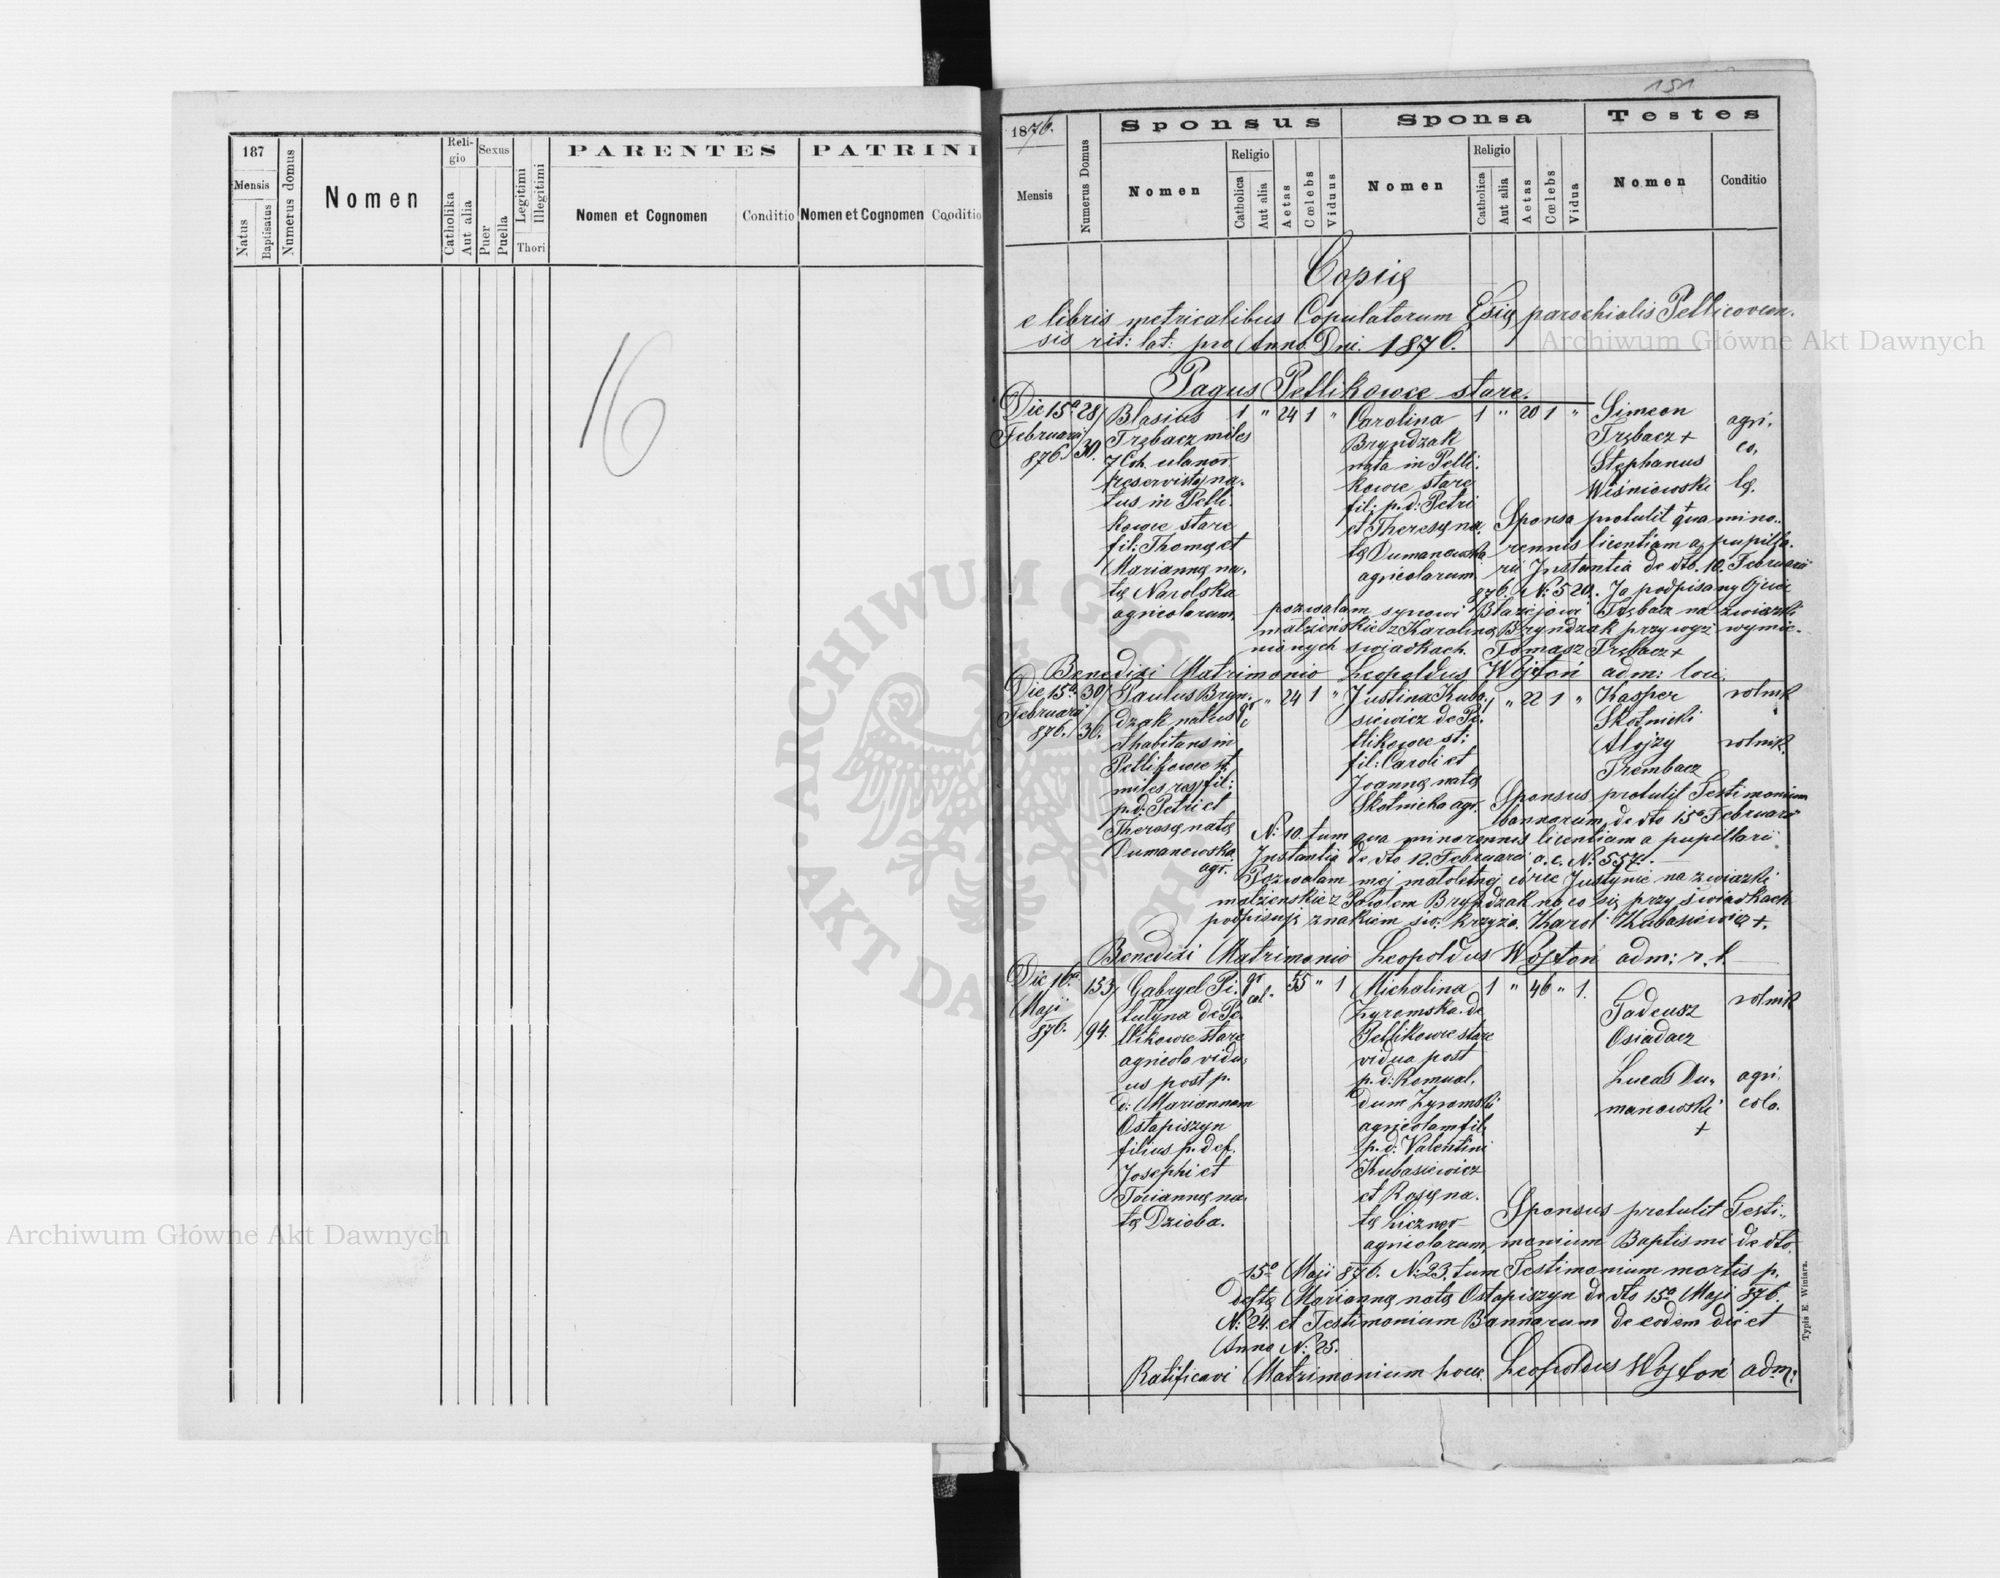 187
Mensis
Natus
Baptisatus
Numerus domus
Nomen
Reli-
gio
Catholika
Aut alia
Sexus
Puer
Puella
Legitimi
Illegitimi
Thori
PARENTES
Nomen et Cognomen
Conditio
PATRINI
Nomen et Cognomen
Conditio
16
151
1876.
Mensis
Numerus Domus
Sponsus
Nomen
Religio
Catholica
Aut alia
Aetas
Cœlebs
Viduus
Sponsa
Nomen
Religio
Catholica
Aut alia
Aetas
Cœlebs
Vidua
Testes
Nomen
Conditio
Copia
e libris metricalibus Copulatorum Esię parochialis Petlicovien.
sis rit: lat: pro Anno Dni. 1876.
Pagus Petlikowce stare.
Die 15a
Februarii
876.
28/
30.
Blasius
Trębacz miles
7 Coh. ulanor
reservistę na.
tus in Petli.
kowce stare
fil: Thomę et
Mariannę na.
tę Narolska
agricolarum.
1 " 24 1 "
Carolina
Bryndzak
nata in Petli.
kowce stare
fil: p. d: Petri
et Theresę na.
tę Dumanowska
agricolarum.
1 " 20 1 "
Simeon
Trębacz +
Stephanus
Wiśniowski
agri.
co,
lę.
Sponsa protulit qua mino..
rennis licentiam a pupilla.
rii Instantia de dto. 10. Februarii
876. N: 520. Ja podpisany Ojciec
pozwalam synowi Błażejowi Trębacz na związki
małżeńskie z Karoliną Bryndzak przy wyż wymie.
nionych świadkach. Tomasz Trębacz +
Benedixi Matrimonio Leopoldus Wojtoń adm: loci.
Die 15a
Februarii
876.
30/
36.
Paulus Bryn.
dzak natus
et habitans in
Petlikowce st.
miles res. fil:
p. d: Petri et
Theresę natę
Dumanowska
agr.
gr
c
" 24 1 "
Justina Kuba.
siewicz de Pe.
tlikowce st:
fil: Caroli et
Joannę natę
Skotnicka agr.
1 " 22 1 "
Kasper
Skotnicki
Alojzy
Trembacz
rolnik
rolnik.
Sponsus protulit Testimonium
bannorum de dto 15a Februarii
N: 10. tum qua minorennis licentiam a pupillari
Instantia de dto 12. Februarii a. c. N: 557.
Pozwalam mej małoletnej córce Justynie na związki
małżenskie z Pawłem Bryndzak na co się przy świadkach
podpisuję znakiem św: krzyża. Karol Kubasiewicz +.
Benedixi Matrimonio Leopoldus Wojtoń adm: r. l.
Die 16a
Maji
876.
153/
94.
Gabryel Pi.
tułyna de Pe.
tlikowce stare
agricola vidu,
us post p.
d: Mariannam
Ostapiszyn
filius p. def.
Josephi et
Mariannę na.
tę Dzioba.
gr
cat.
55 " 1
Michalina
Zyromska de
Petlikowce stare
vidua post
p. d: Romual,
dum Zyromski
agricolam fil.
p. d: Valentini
Kubasiewicz
et Rosę na.
tę Liczner
agricolarum.
1 " 46 " 1.
Tadeusz
Osiadacz
Lucas Du,
manowski
+
rolnik
agri.
cola.
Sponsus protulit Testi,,
monium Baptismi de dto.
15a Maji 876. N: 23. tum Testimonium mortis p.
deftę Mariannę natę Ostapiszyn de dto 15a Maji 876.
N: 24. et Testimonium Bannorum de eodem die et
Anno N: 25.
Ratificavi Matrimonium hocce. Leopoldus Wojtoń adm:
Typis E Winiarz.
Archiwum Główne Akt Dawnych
Archiwum Główne Akt Dawnych
ARCHIWUM GŁÓWNE AKT DAWNYCH